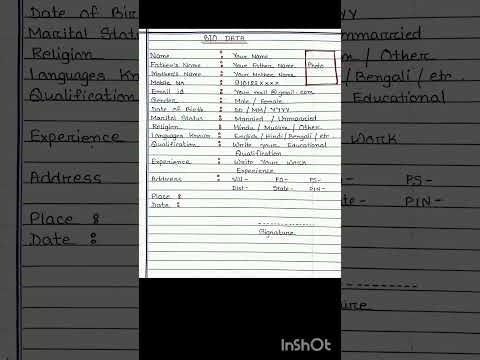 BIO DATA
Name : Your Name
Father's Name : Your Father Name
Photo
Mother's Name : Your Mother Name
Mobile No : 910182××××
Email id : Your mail @gmail.com
Gender : Male / Female
Date of Birth : DD / MM / YYYY
Marital Status : Married / Unmarried
Religion : Hindu / Muslim / Other
Languages Known : English / Hindi / Bengali / etc
Qualification : Write your Educational
Qualification
Experience : Write Your Work
Experience
Address : Vill- PO- PS-
Dist- State- PIN-
Place :
Date :
Signature
Date of Bir
Marital Stat
Religion
Languages Kno
Qualification
Experience
Address
Place :
Date :
YYY
nmarried
/ Other
/Bengali / etc.
Educational
Work
PS-
PIN-
ure
InShOt